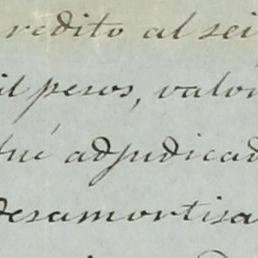 redito al sei
il pesos, valor
fué adjudicad
desamortisa